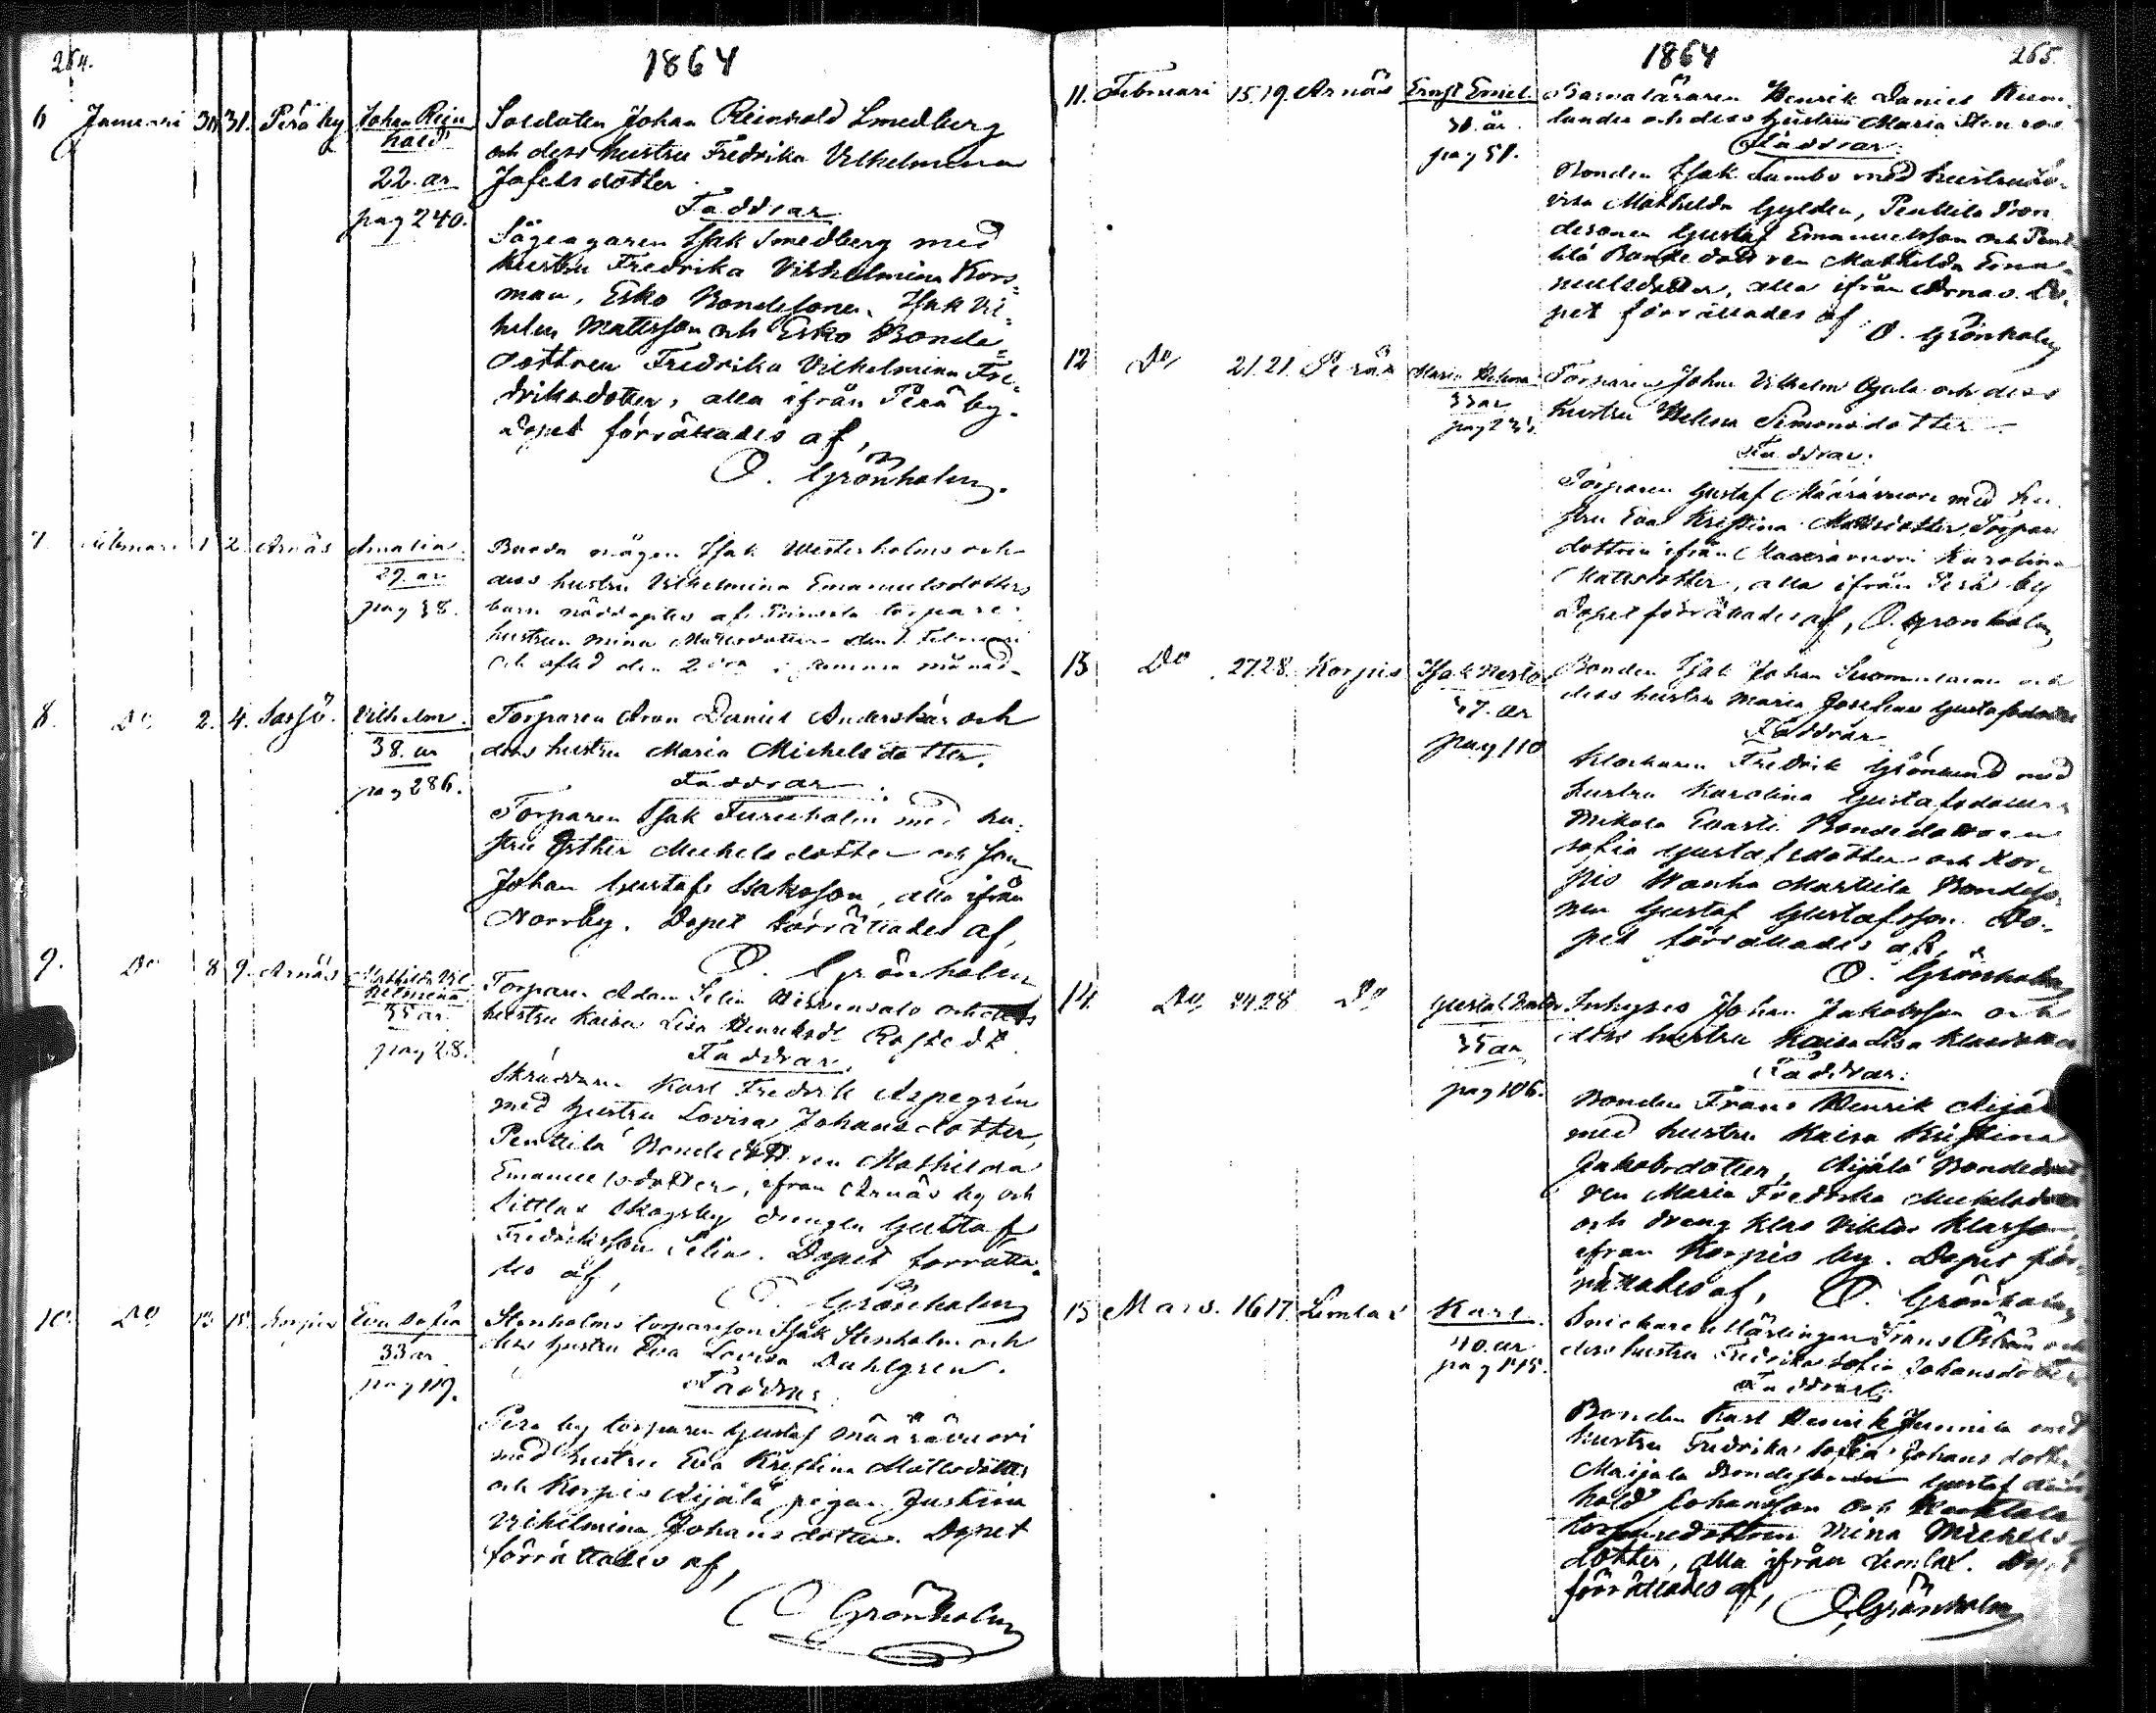 264.
1864
6 Januari 30 31. Perä by Johan Rein
hold
22. år
pag 240.
Soldaten Johan Reinhold Smedberg
och dess hustru Fredrika Vilhelmina
Josefsdotter
Faddrar
Sågegaren Isak Smedberg med
hustru Fredrika Vilhelmina Kors=
man, Esko Bondesonen Isak Vil=
helm Mattsson och Esko Bonde=
dottren Fredrika Vilhelmina Fre=
driksdotter, alla ifrån Perä by.
Dopet förrättades af,
O. Grönholm.
7. Februari 1 2 Arnäs Amalia
27. år
pag 38.
Isak Westerholms och
dess hustru Vilhelmina Emanuelsdotters
barn nöddöptes af torpare
hustrun Mina den 2 Februari
och afled den 2 samma månad
8. Do 2. 4. Sarsö. Vilhelm.
38. år
pag 286.
Torparen Aron Daniel Anderskär och
dess hustru Maria Michelsdotter.
Faddrar
Torparen Isak Furuholm med hu=
stru Esther Michelsdotter och son
Johan Gustaf Isaksson, alla ifrån
Norrby. Dopet förrättades af,
O. Grönholm
9. Do 8 9. Arnäs Mathilda Vil
helmina
35 år
pag 28.
Torparen Adam Selin Hirvensalo och dess
hustru Kaisa Lisa Henriksdr Rostedt
Faddrar.
Skräddaren Karl Fredrik Aspegrén
med hustru Lovisa Johansdotter,
Penttilä Bondedottren Mathilda
Emanuelsdotter, ifrån Arnäs by och
Sittlax Skogsby drengen Gustaf
Fredriksson Selin. Dopet förrätta=
des af,
O. Grönholm
10. Do 13 15. Korpis Eva Sofia
33 år
pag 119.
Stenholms torparson Isak Stenholm och
dess hustru Eva Lovisa Dahlgren.
Faddrar
Perä by torparen Gustaf Määrävuori
med hustru Eva Kristina Mattsdotter
och Korpis Äijälä pigan Justina
Vilhelmina Johansdotter. Dopet
förrättades af,
O Grönholm
1864
265.
11. Februari 15. 19. Arnäs Ernst Emil.
30. år.
pag 51.
Barnaläraren Henrik Daniel
lander och dess hustru Maria Stenroos
Faddrar.
Bonden Isak Lambo med hustru Lo=
visa Mathilda Gylden, Penttilä Bon
desonen Gustaf Emanuelsson och Pent=
tilä Bondedottren Mathilda Ema=
nuelsdotter, alla ifrån Arnäs. Do=
pet förrättades af
O. Grönholm
12 Do 21. 21. Perä Maria Helena
33 år
Torparen Johan Vilhelm Ojala och dess
hustru Helena Simonsdotter
Faddrar.
Torparen Gustaf Määrävuori med hu=
stru Eva Kristina Mattsdotter, Torpare
dottren ifrån Määrävuori Karolina
Mattsdotter, alla ifrån Perä by
Dopet förrättades af, O. Grönholm
13 Do 27. 28. Korpis Isak Nestor
27. år
pag 110
Bonden Isak Johan Suominen och
dess hustru Maria Josefina Gustafsdotter
Faddrar
Klockaren Fredrik Grönlund med
hustru Karolina Gustafsdotter
Mikola Evasti Bondedottren
Sofia Gustafsdotter och Kor=
pis Wanha Marttila Bondeso=
nen Gustaf Gustafsson. Do=
pet förrättades af,
O. Grönholm
14. Do 24 28 Do Gustaf
35 år
pag 106.
Inhyses Johan Jakobsson och
dess hustru Kaisa Lisa Klasdotter
Faddrar:
Bonden Frans Henrik Äijälä
med hustru Kaisa Kristina
Jakobsdotter, Äijälä Bondedott
ren Maria Fredrika Michelsdotter
och dreng Klas Viktor Klasson,
ifrån Korpis by. Dopet för=
rättades af, O. Grönholm
15 Mars. 16 17. Lemlax Karl.
40. år
pag 145.
Snickare Lärlingen Frans Öström och
dess hustru Fredrika Sofia Johansdotter
Faddrar
Bonden Karl Henrik Junnila med
hustru Fredrika Sofia Johansdotter
Maijala Bondesonen Gustaf Rein
hold Johansson och
torparedottren Mina Michels=
dotter, alla ifrån Lemlax. Dopet
förrättades af, O. Grönholm